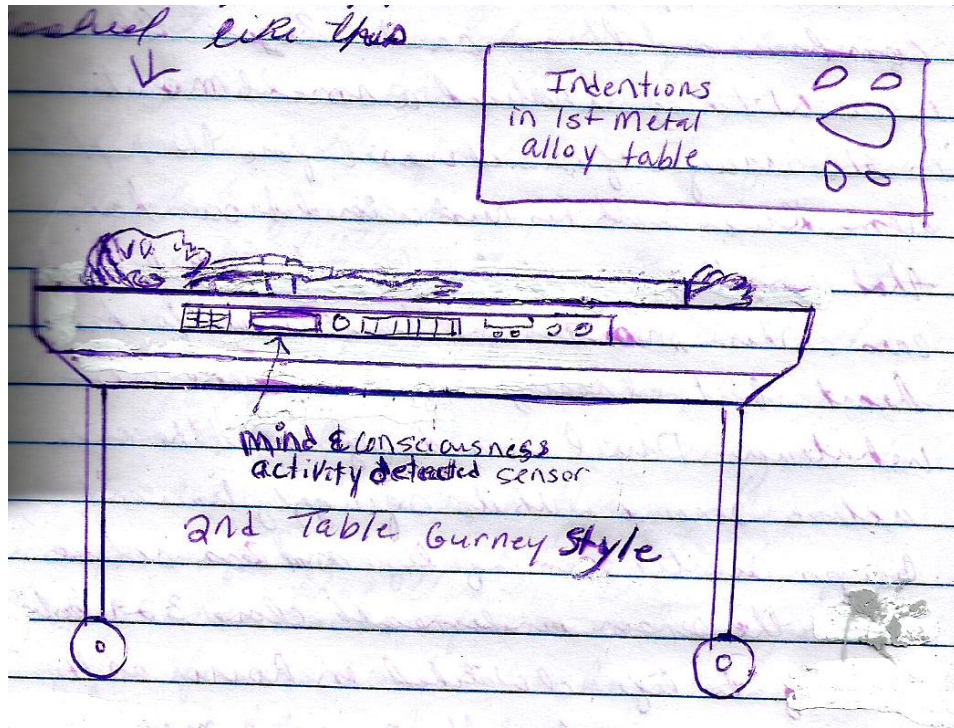 like this
Indentions
in 1st Metal
alloy table
mind & consciousness
activity detected sensor
2nd Table Gurney Style